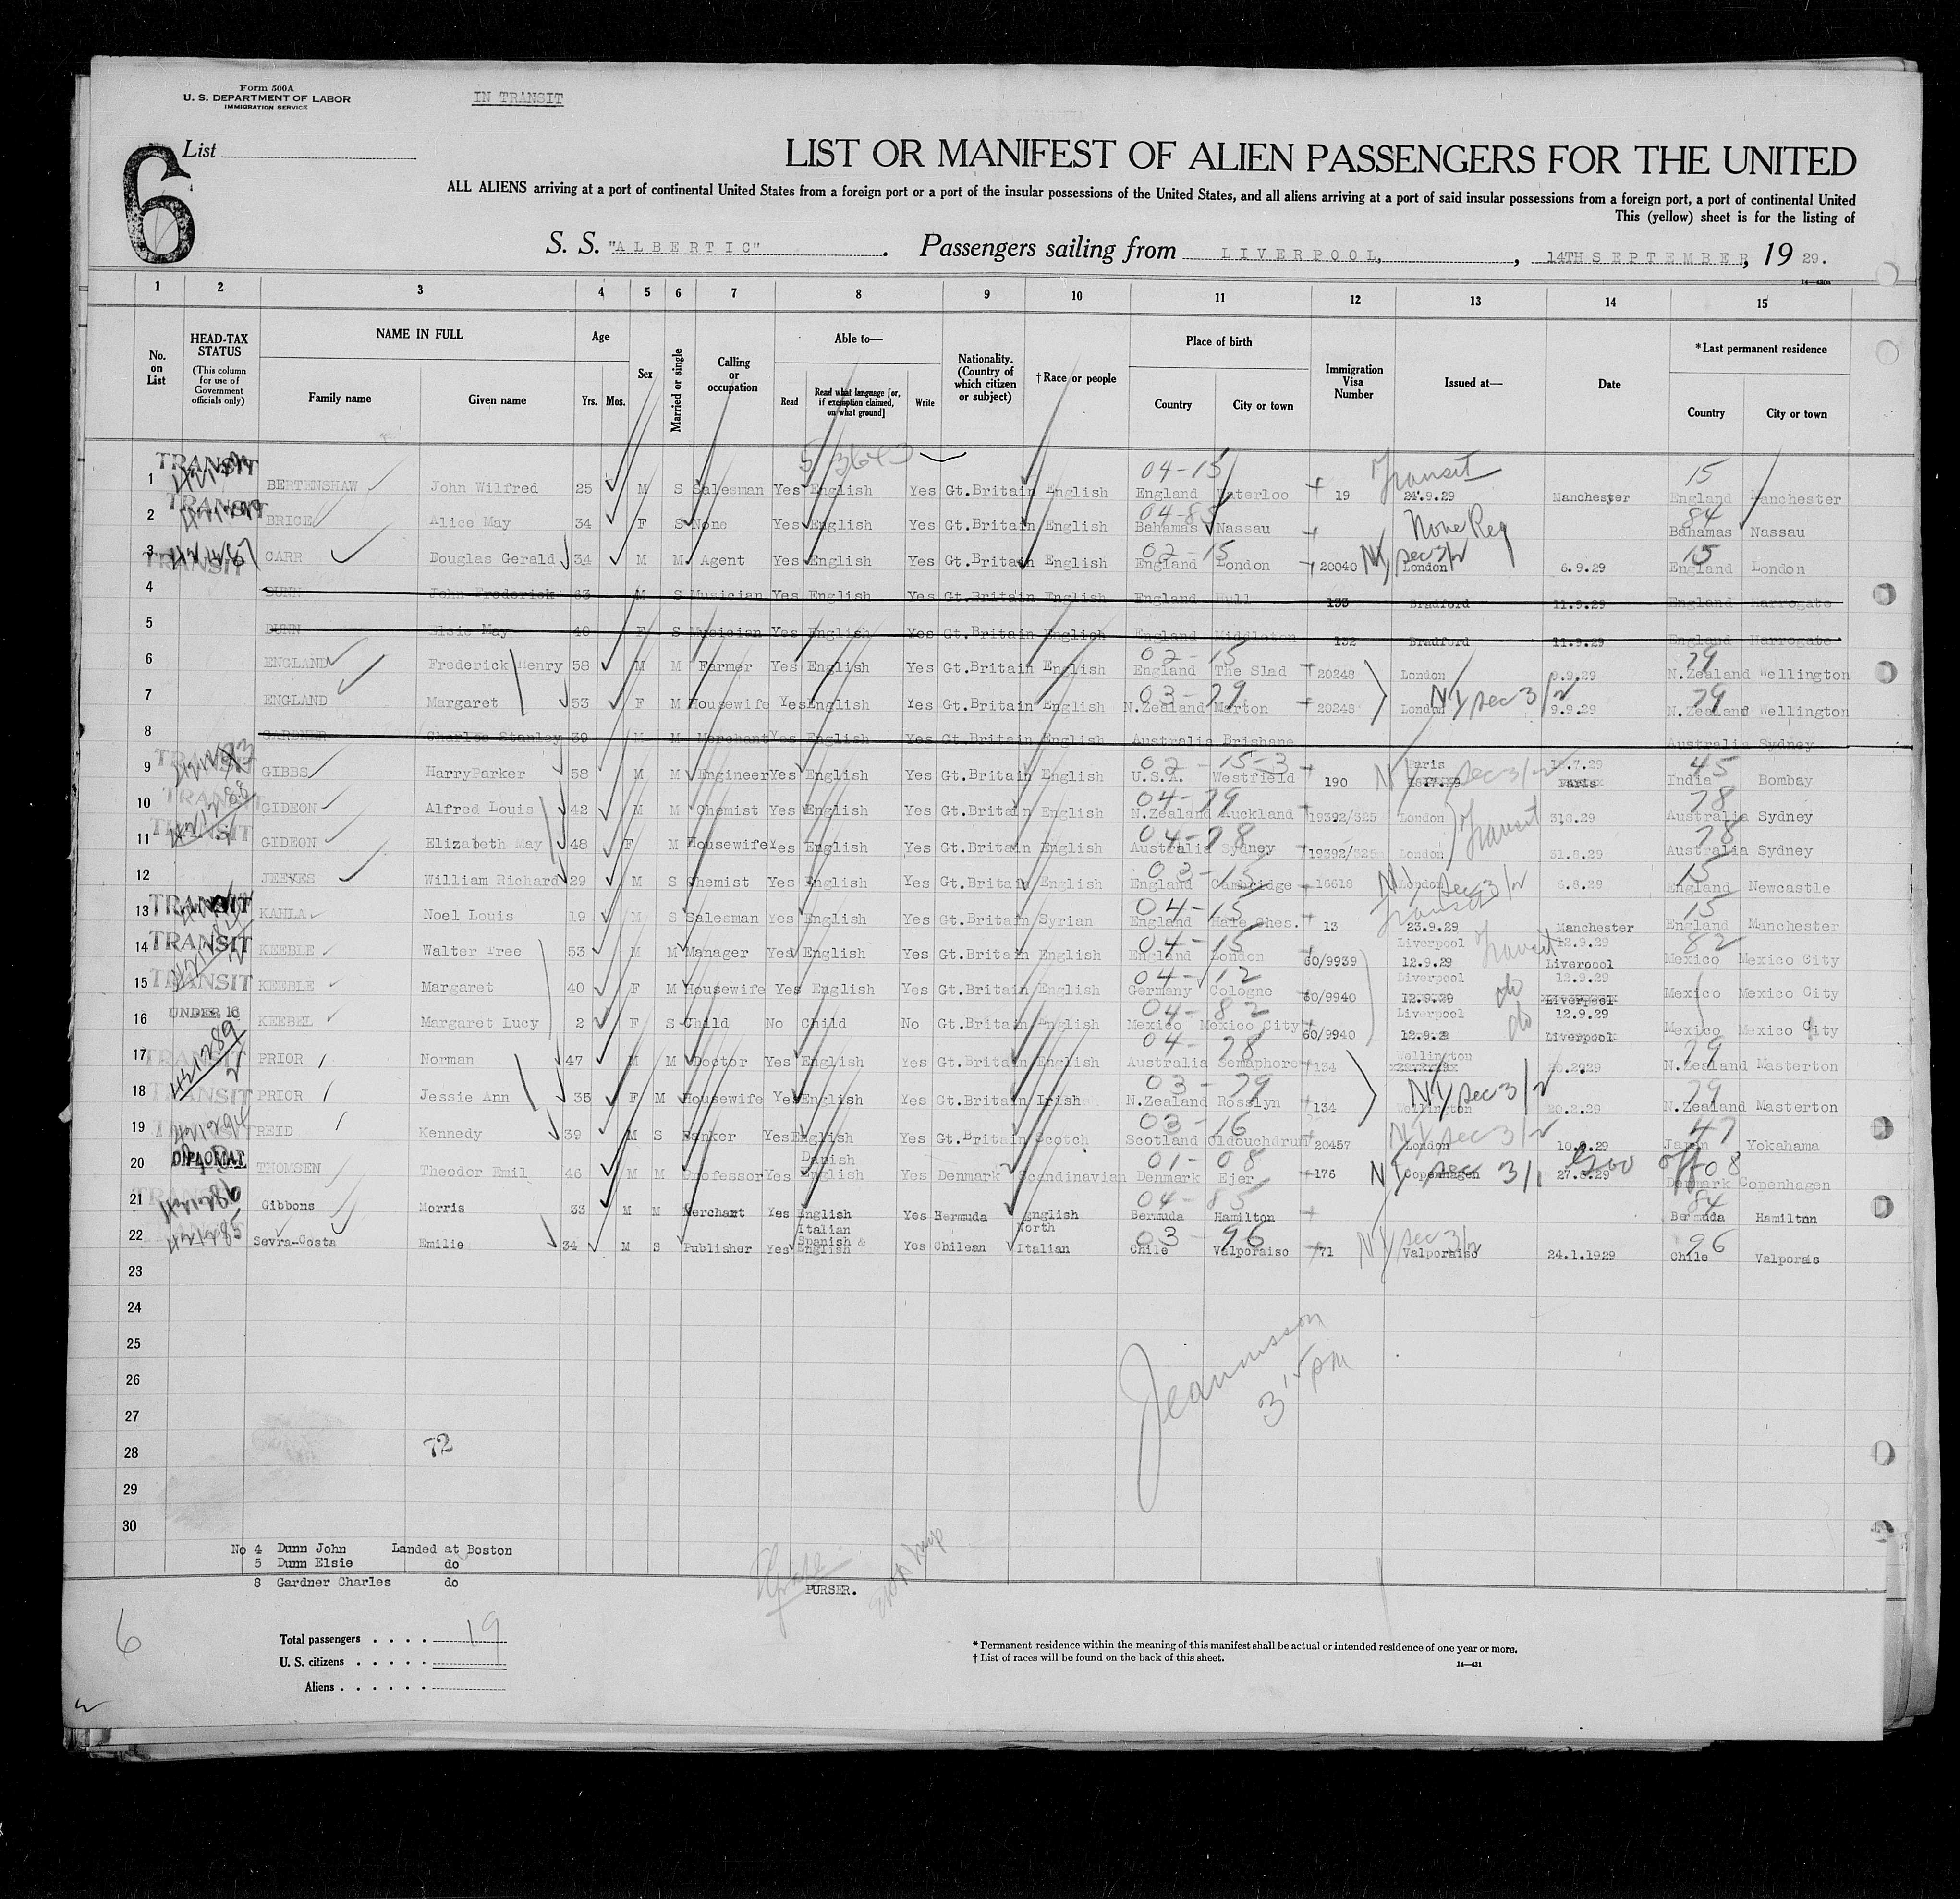 Form 500A
U. S. DEPARTMENT OF LABOR
IMMIGRATION SERVICE
IN TRANSIT
6
List
LIST OR MANIFEST OF ALIEN PASSENGERS FOR THE UNITED
ALL ALIENS arriving at a port of continental United States from a foreign port or a port of the insular possessions of the United States, and all aliens arriving at a port of said insular possessions from a foreign port, a port of continental United
This (yellow) sheet is for the listing of
S. S. "ALBERTIC". Passengers sailing from LIVERPOOL, , 14TH SEPTEMBER, 19 29.
1 2 3 4 5 6 7 8 9 10 11 12 13 14 15
No. on List
HEAD-TAX STATUS
(This column for use of Government officials only)
NAME IN FULL
Family name
Given name
Age
Yrs. Mos.
Sex
Married or single
Calling or occupation
Able to—
Read
Read what language [or, if exemption claimed, on what ground]
Write
Nationality. (Country of which citizen or subject)
†Race or people
Place of birth
Country
City or town
Immigration Visa Number
Issued at—
Date
*Last permanent residence
Country
City or town
04-15 Transit 15
1 TRANSIT BERTENSHAW John Wilfred 25 M S Salesman Yes English Yes Gt.Britain English England Waterloo 19 24.9.29 Manchester England Manchester
04-85 None Req 84
2 TRANSIT BRICE Alice May 34 F S None Yes English Yes Gt.Britain English Bahamas Nassau Bahamas Nassau
02-15 NY sec 3/2 15
3 TRANSIT CARR Douglas Gerald 34 M M Agent Yes English Yes Gt.Britain English England London 20040 London 6.9.29 England London
4 DUNN John Frederick 63 M S Musician Yes English Yes Gt.Britain English England Hull 133 Bradford 11.9.29 England Harrogate
5 DUNN Elsie May 40 F S Musician Yes English Yes Gt.Britain English England Middleton 132 Bradford 11.9.29 England Harrogate
02-15 79
6 ENGLAND Frederick Henry 58 M M Farmer Yes English Yes Gt.Britain English England The Slad 20248 London 9.9.29 N.Zealand Wellington
03-79 NY sec 3/2 79
7 ENGLAND Margaret 53 F M Housewife Yes English Yes Gt.Britain English N.Zealand Marton 20248 London 9.9.29 N.Zealand Wellington
8 GARDNER Charles Stanley 39 M M Merchant Yes English Yes Gt.Britain English Australia Brisbane Australia Sydney
02-15-3 NY sec 3/2 45
9 TRANSIT GIBBS HarryParker 58 M M Engineer Yes English Yes Gt.Britain English U.S.A. Westfield 190 Paris India Bombay
04-79 78
10 TRANSIT GIDEON Alfred Louis 42 M M Chemist Yes English Yes Gt.Britain English N.Zealand Auckland 19392/325 London 31.8.29 Australia Sydney
04-78 Transit 78
11 TRANSIT GIDEON Elizabeth May 48 F M Housewife Yes English Yes Gt.Britain English Australia Sydney 19392/325 London 31.8.29 Australia Sydney
03-15 NY sec 3/2 15
12 JEEVES William Richard 29 M S Chemist Yes English Yes Gt.Britain English England Cambridge 16618 London 6.8.29 England Newcastle
04-15 Transit 15
13 TRANSIT KAHLA Noel Louis 19 M S Salesman Yes English Yes Gt.Britain Syrian England Hale Ches. 13 23.9.29 Manchester England Manchester
04-15 Liverpool Transit 12.9.29 82
14 TRANSIT KEEBLE Walter Tree 53 M M Manager Yes English Yes Gt.Britain English England London 60/9939 12.9.29 Liverpool Mexico Mexico City
04-12 Liverpool do 12.9.29
15 TRANSIT KEEBLE Margaret 40 F M Housewife Yes English Yes Gt.Britain English Germany Cologne 60/9940 12.9.29 Liverpool Mexico Mexico City
04-82 Liverpool do 12.9.29
16 UNDER 16 KEEBEL Margaret Lucy 2 F S Child No Child No Gt.Britain English Mexico Mexico City 60/9940 Liverpool Mexico Mexico City
04-78 Wellington 79
17 TRANSIT PRIOR Norman 47 M M Doctor Yes English Yes Gt.Britain English Australia Semaphore 134 20.2.29 N.Zealand Masterton
03-79 NY sec 3/2 79
18 TRANSIT PRIOR Jessie Ann 35 F M Housewife Yes English Yes Gt.Britain Irish N.Zealand Rosslyn 134 Wellington 20.2.29 N.Zealand Masterton
03-16 NY sec 3/2 47
19 REID Kennedy 39 M S Banker Yes English Yes Gt.Britain Scotch Scotland 20457 London Japan Yokahama
Danish 01-08 NY sec 3/1 08
20 DIPLOMAT THOMSEN Theodor Emil 46 M M Professor Yes English Yes Denmark Scandinavian Denmark Ejer 176 Copenhagen 27.8.29 Denmark Copenhagen
04-85 84
21 TRANSIT Gibbons Morris 33 M M Merchant Yes English Yes Bermuda English Bermuda Hamilton Bermuda Hamiltnn
Italian Spanish & North 03-96 NY sec 3/2 96
22 TRANSIT Sevra-Costa Emilie 34 M S Publisher Yes English Yes Chilean Italian Chile Valporaiso 71 Valporaiso 24.1.1929 Chile Valporais
23
24
25
26
27
28 72
29
30
3 15 PM
No 4 Dunn John Landed at Boston
5 Dunn Elsie do
8 Gardner Charles do
PURSER.
6
Total passengers . . . . 19
U. S. citizens . . . . .
Aliens . . . . . .
* Permanent residence within the meaning of this manifest shall be actual or intended residence of one year or more.
† List of races will be found on the back of this sheet.
14—431